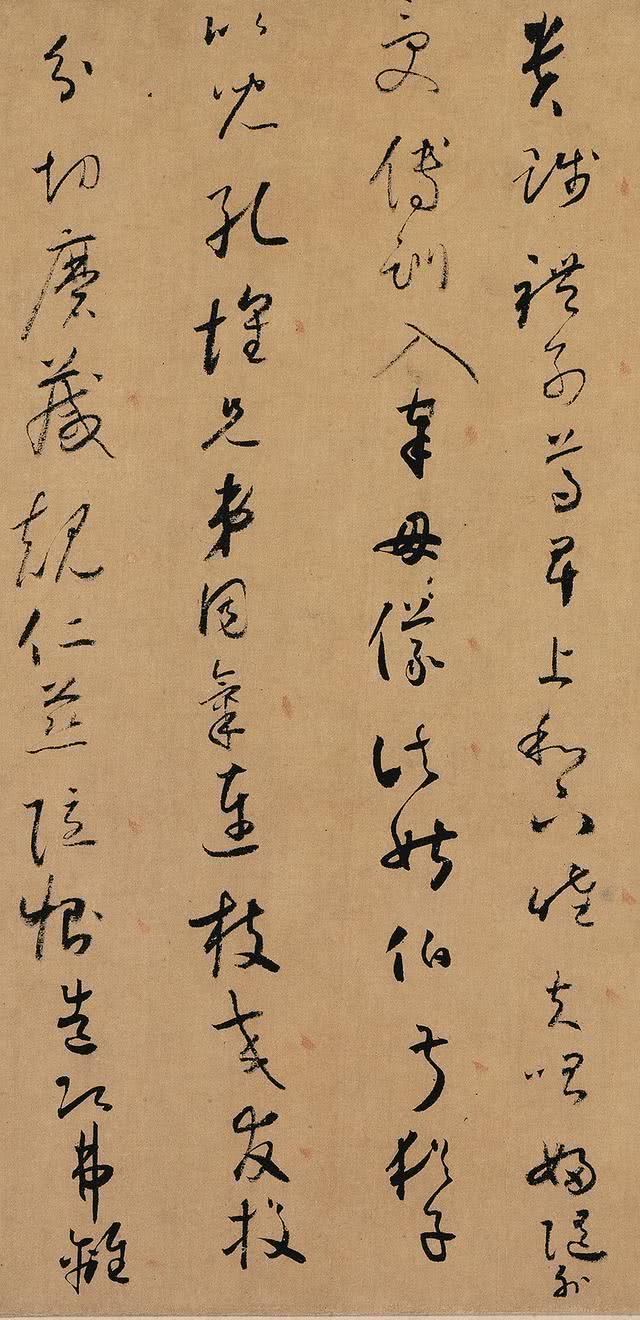 貴賤禮別尊卑上和下睦夫唱婦隨外
受傅訓入奉母儀諸姑伯叔猶子
比兒孔懷兄弟同氣連枝交友投
分切磨箴規仁慈隱惻造次弗離